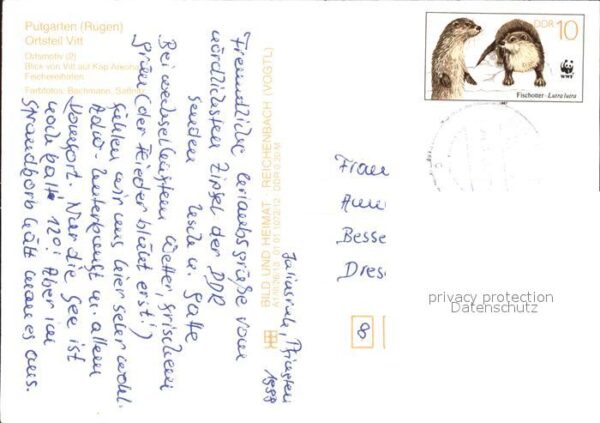 Putgarten (Rügen)
Ortsteil Vitt
Ortsmotiv (2)
Blick von Vitt auf Kap Arkona
Fischereihafen
Farbfotos: Bachmann, Saßnitz
BILD UND HEIMAT REICHENBACH (VOGTL)
DDR 10
Fischotter · Lutra lutra
WWF
Juliusruh, Pfingsten
Freundliche Urlaubsgrüße vom
nördlichsten Zipfel der DDR
senden
Bei wechselhaftem Wetter, frischem
Grün (der Flieder blüht erst!)
fühlen wir uns hier sehr wohl.
Adlw-Unterkunft m. allem
Komfort. Nur die See ist
noch kalt 12°! Aber im
Strandkorb hält man es aus.
Frau
Besse
Dres
8
privacy protection
Datenschutz